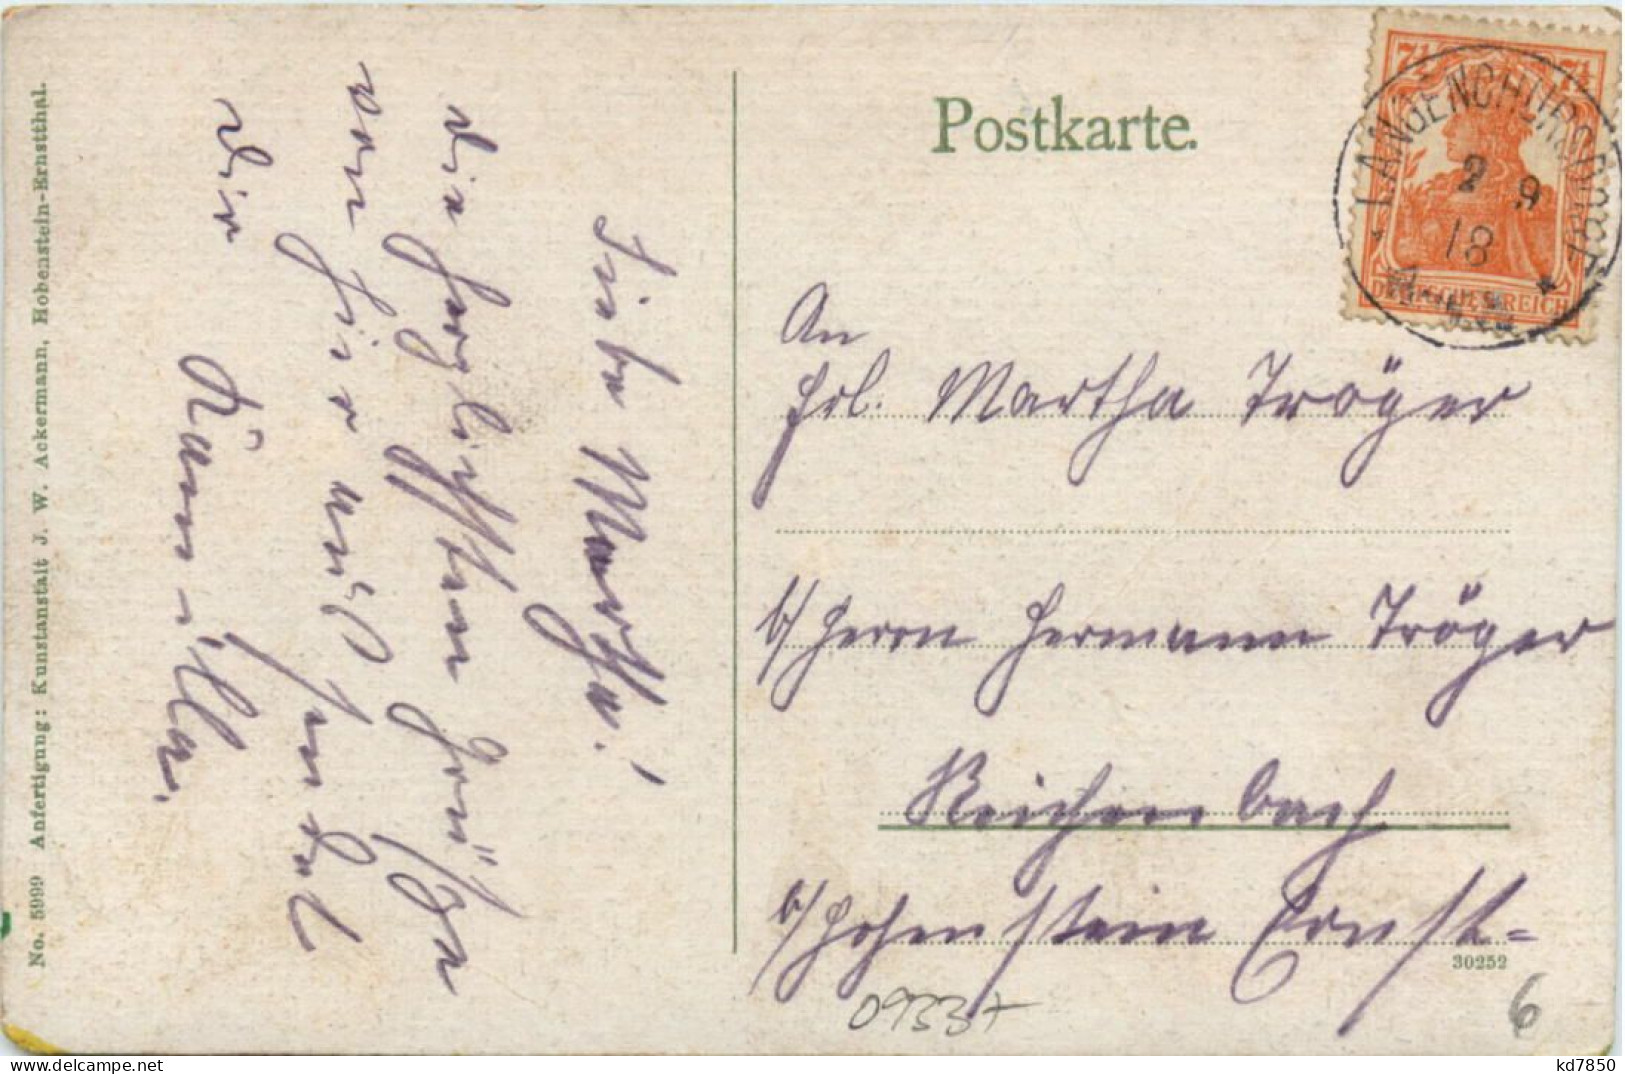 No. 5999 Anfertigung: Kunstanstalt J. W. Ackermann, Hohenstein-Ernstthal.
Liebe Martha!
Die herzlichsten Grüße
von hier aus sendet
Dir
Postkarte.
7½ 7½
LANGENCHURSDORF
2 9
18
DEUTSCHES REICH
An
Frl. Martha Tröger
b/ Herrn Hermann Tröger
Reichenbach
b/ Hohenstein Ernstt=
30252
0933+
6
kd7850